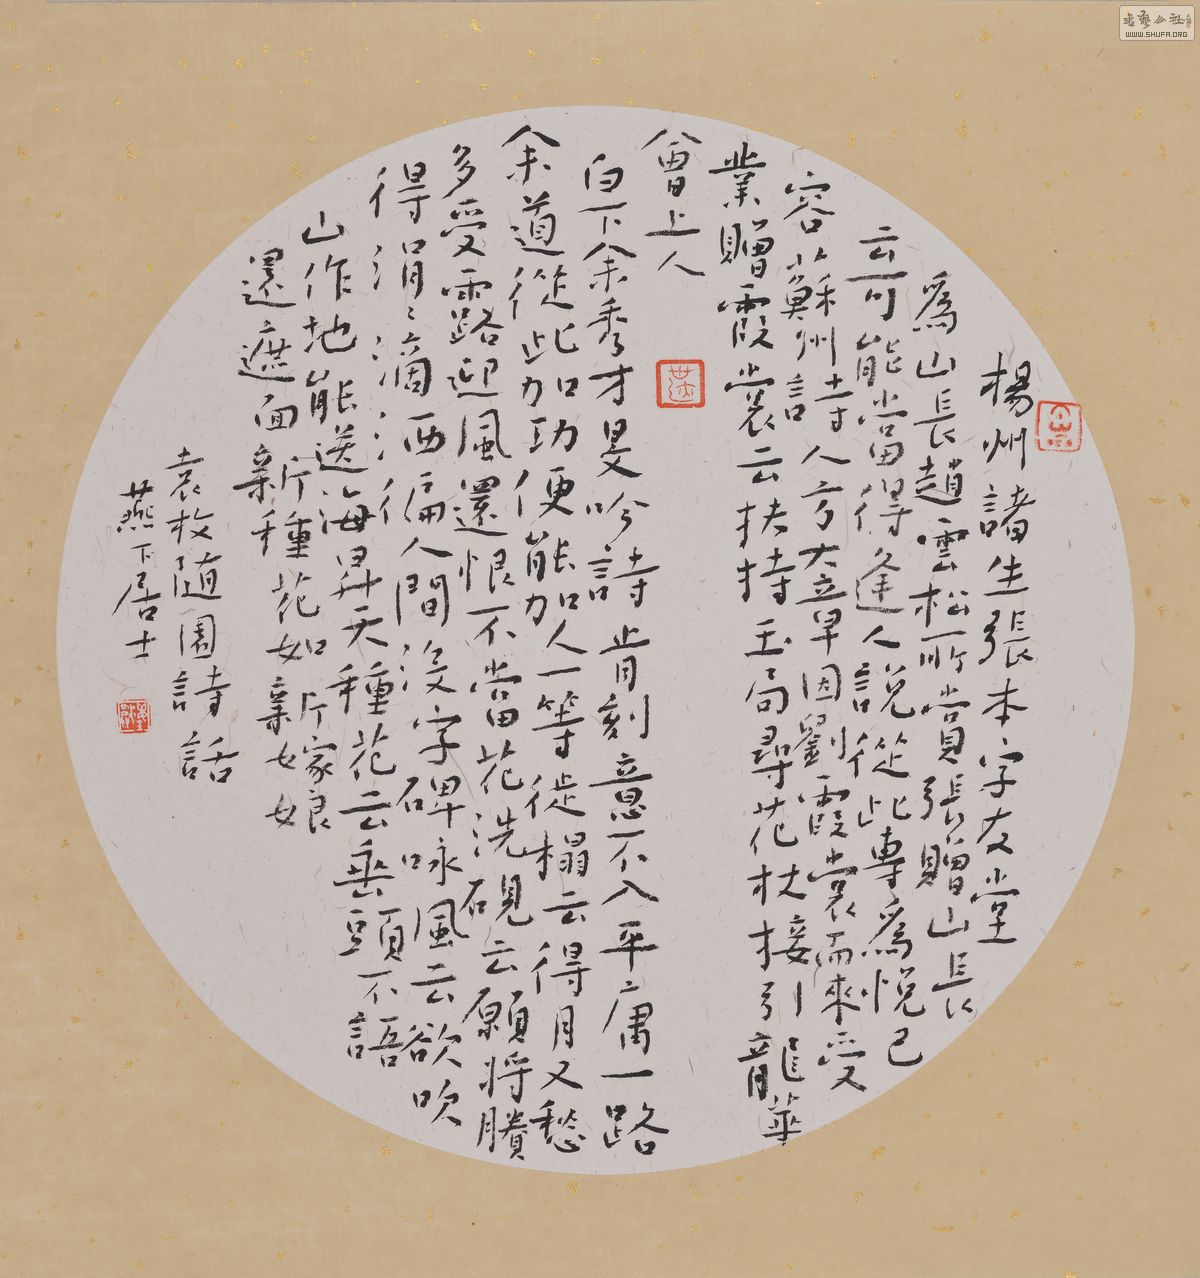 楊州諸生張本字友堂
爲山長趙雲松所賞張贈山長
云可能當得逢人說從此專爲悅己
容蘇州詩人方大章因劉霞裳而來受
業贈霞裳云扶持玉局尋花杖接引龍華
會上人
白下余秀才旻吟詩肯刻意不入平庸一路
余道從此加功便能加人一等徙榻云得月又愁
多受露迎風還恨不當花洗硯云願將賸
得涓〻滴洒徧人間沒字碑咏風云欲吹
山作地能送海昇天種花云垂頭不語
還遮面新種花如新嫁娘
袁枚隨園詩話
燕下居士
书艺公社
WWW.SHUFA.ORG